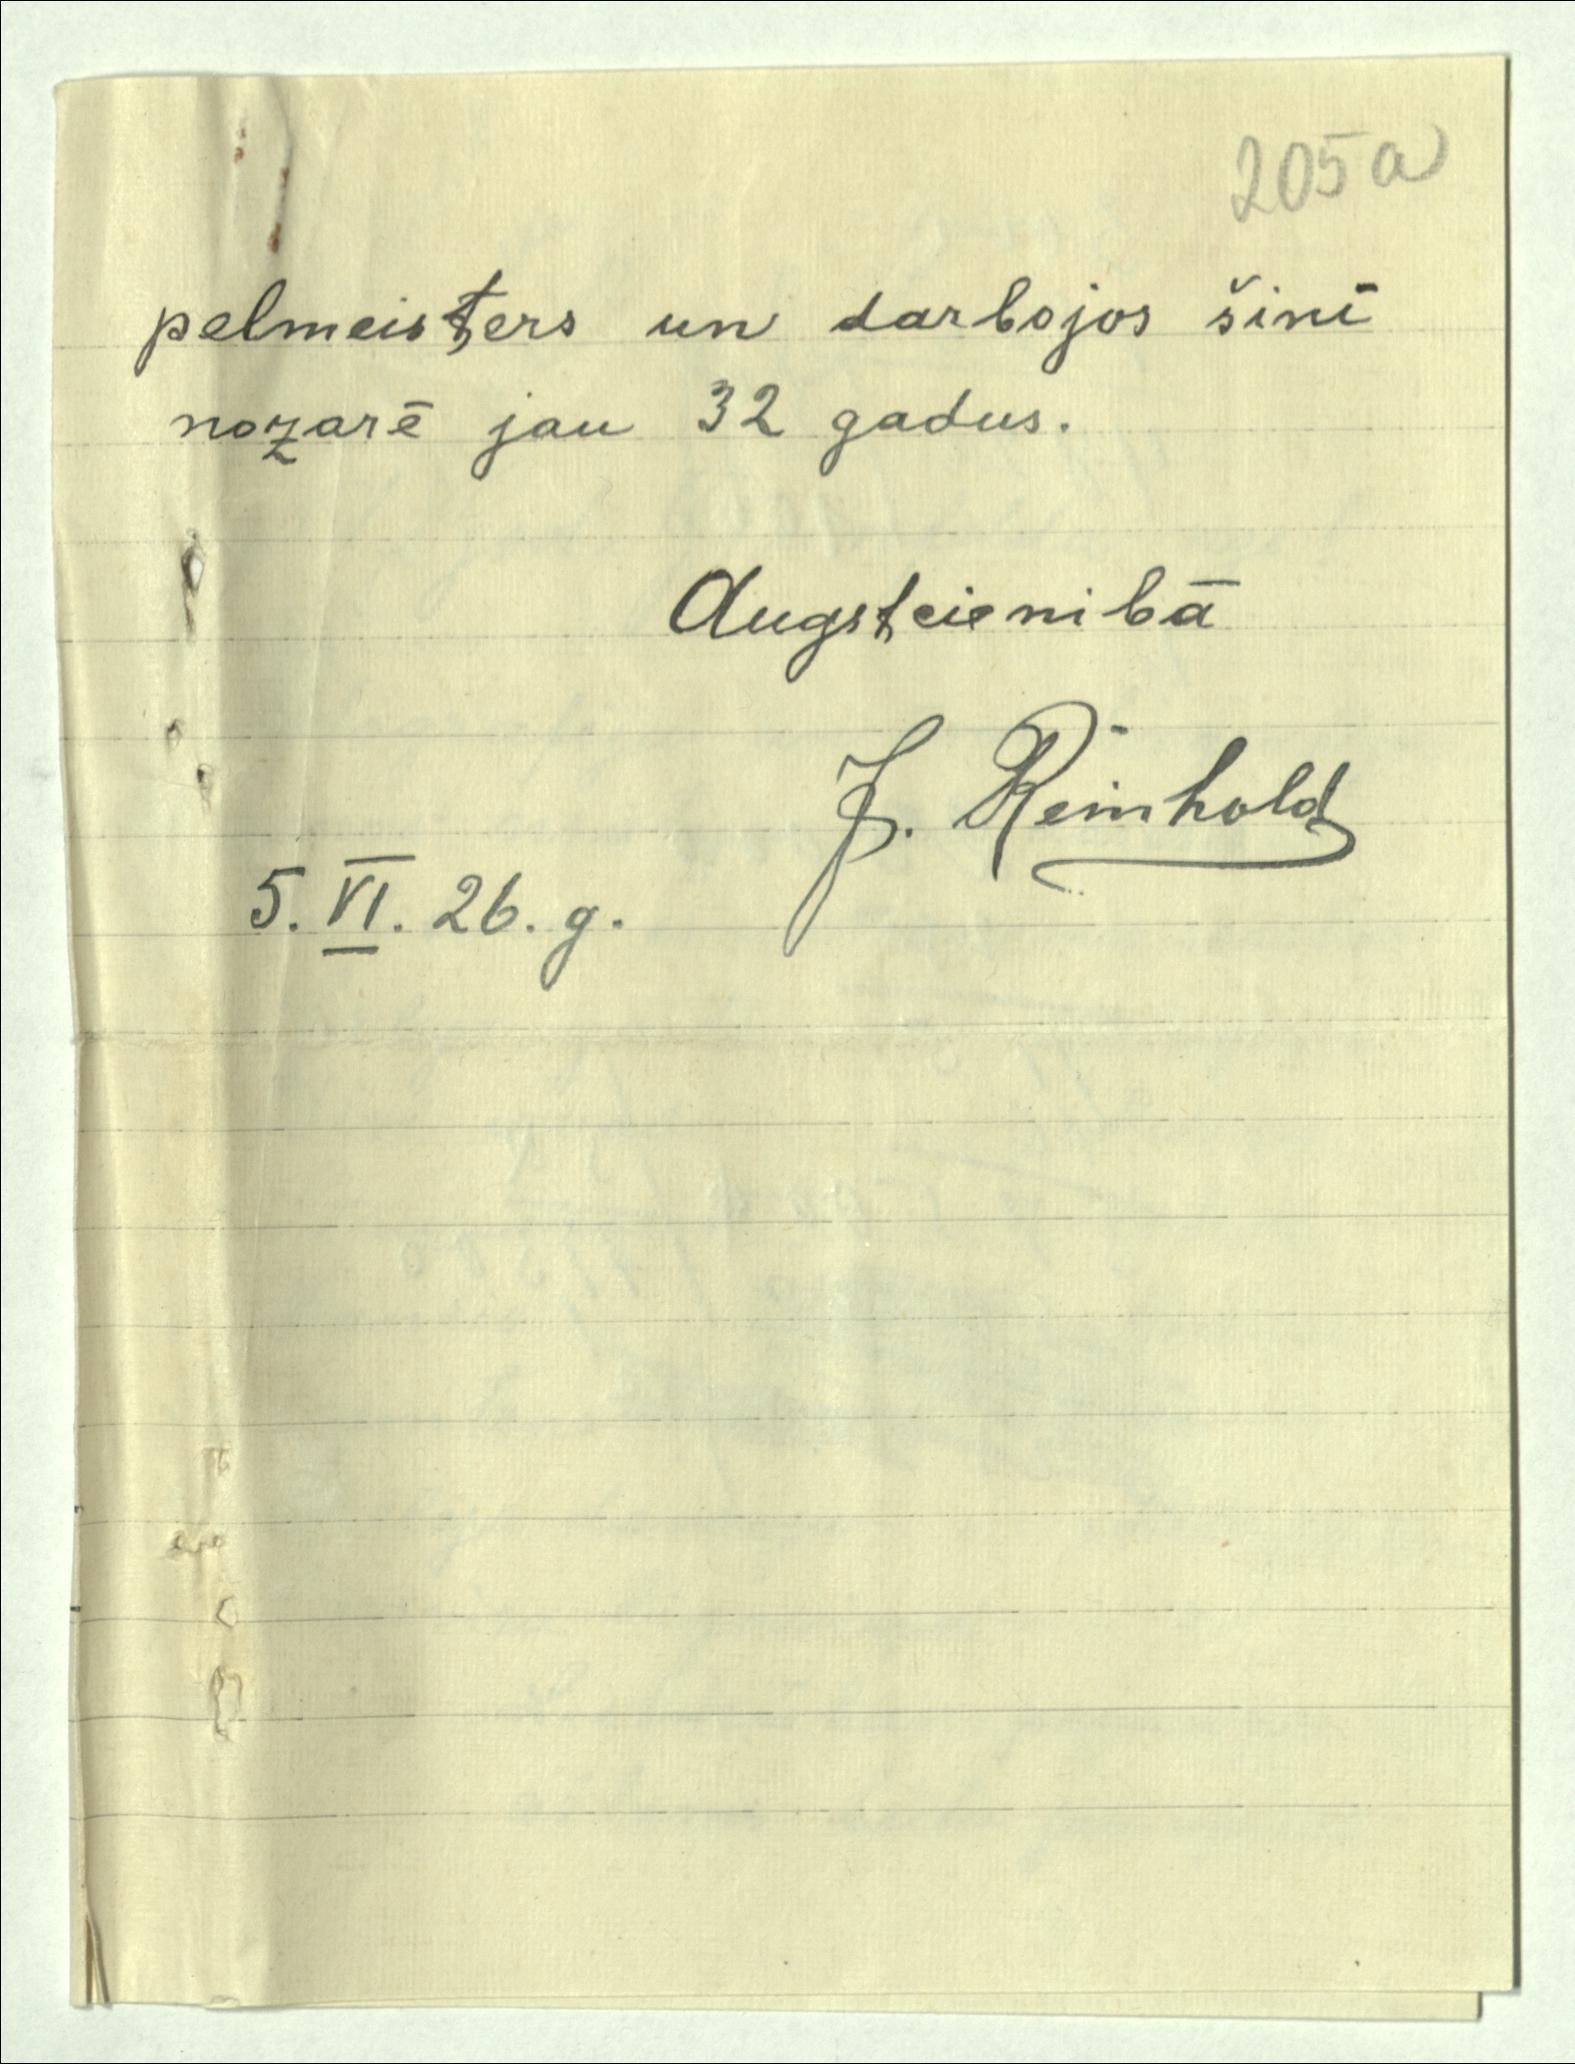 205a
pelmeisters un darbojos šinī
nozarē jau 32 gadus.
Augstcienibā
J. Reinhold
5. VI. 26. g.